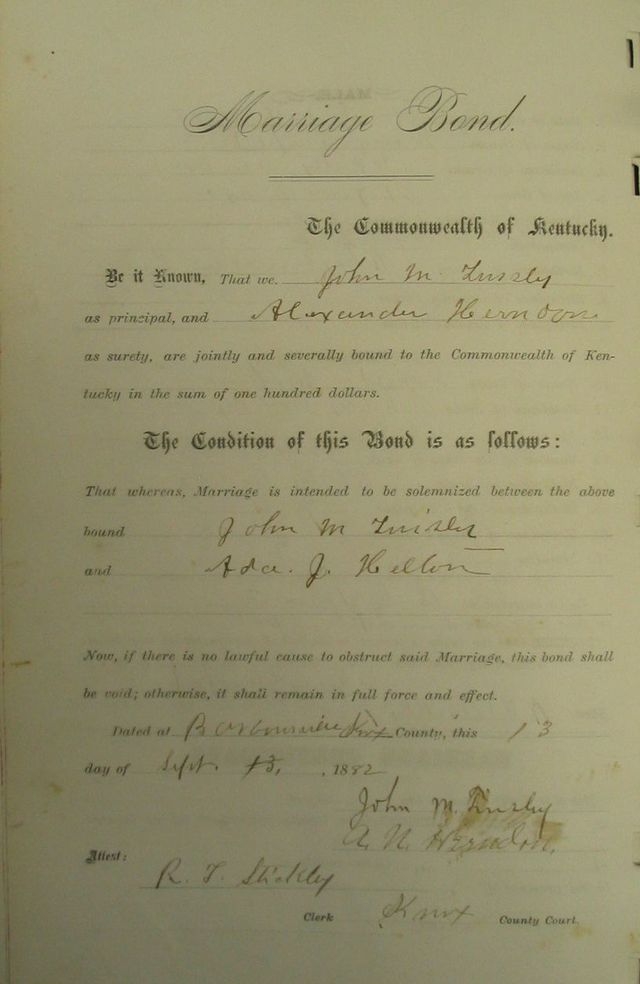 Marriage Bond.
The Commonwealth of Kentucky.
Be it Known, That we John M Tinsley
as principal, and Alexander Herndon
as surety, are jointly and severally bound to the Commonwealth of Ken-
tucky in the sum of one hundred dollars.
The Condition of this Bond is as follows:
That whereas, Marriage is intended to be solemnized between the above
bound John M Tinsley
and Ada. J. Helton
Now, if there is no lawful cause to obstruct said Marriage, this bond shall
be void; otherwise, it shall remain in full force and effect.
Dated at Barbourville Knox County, this 13
day of Sept. 13, , 1882
John M. Tinsley
A. N. Herndon.
Attest:
R. T. Stickley
Clerk Knox County Court.